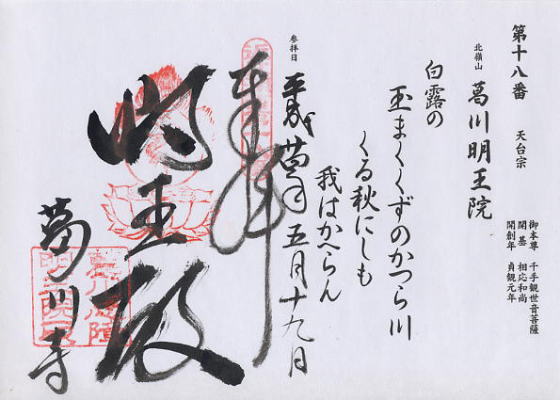 第十八番 天台宗
北嶺山 葛川明王院
御本尊 千手観世音菩薩
開基 相応和尚
開創年 貞観元年
白露の
玉まくくずのかつら川
くる秋にしも
我はかへらん
参拝日
平成 五月十九日
奉拝
明王殿
葛川寺